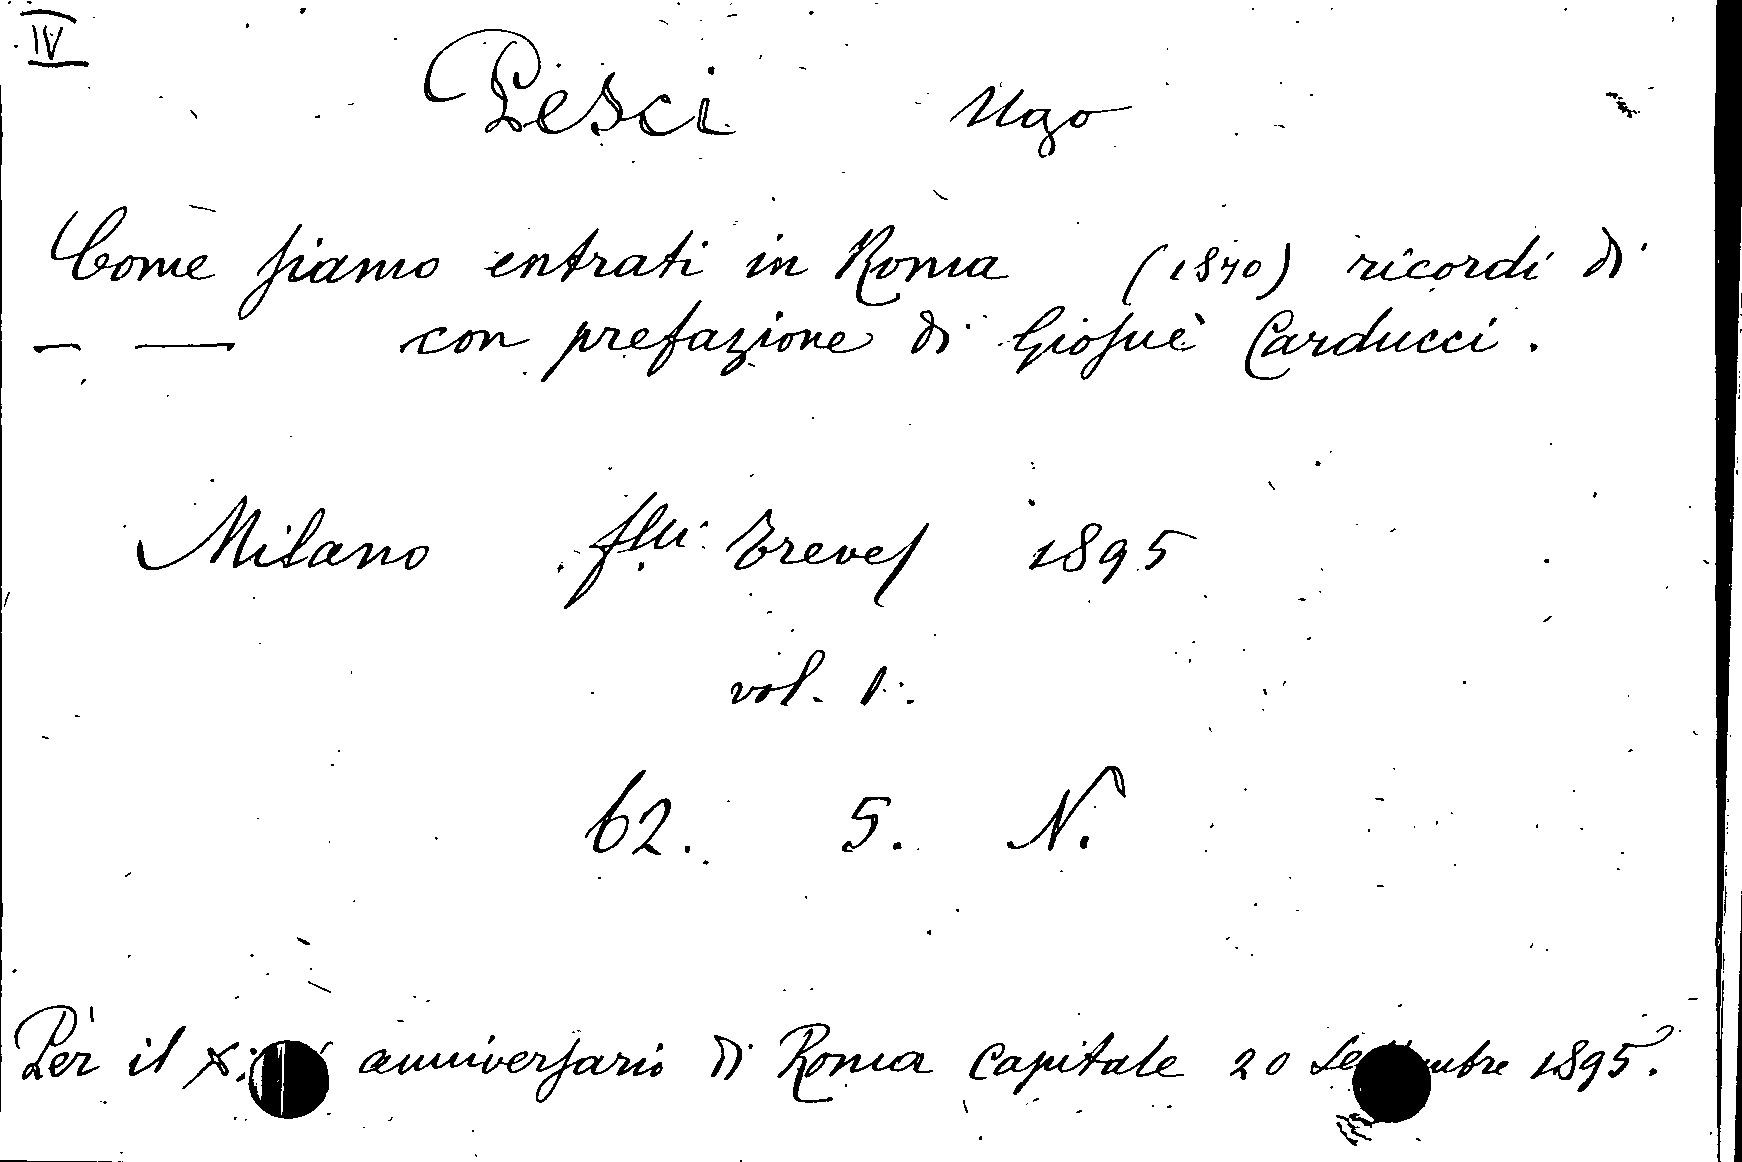 IV
Pesci Ugo
Come siamo entrati in Roma (1870) ricordi di
— — con prefazione di Giosuè Carducci.
Milano flli Treves 1895
vol. 1.
62. 5. N.
Per il anniversario di Roma Capitale 20 1895.